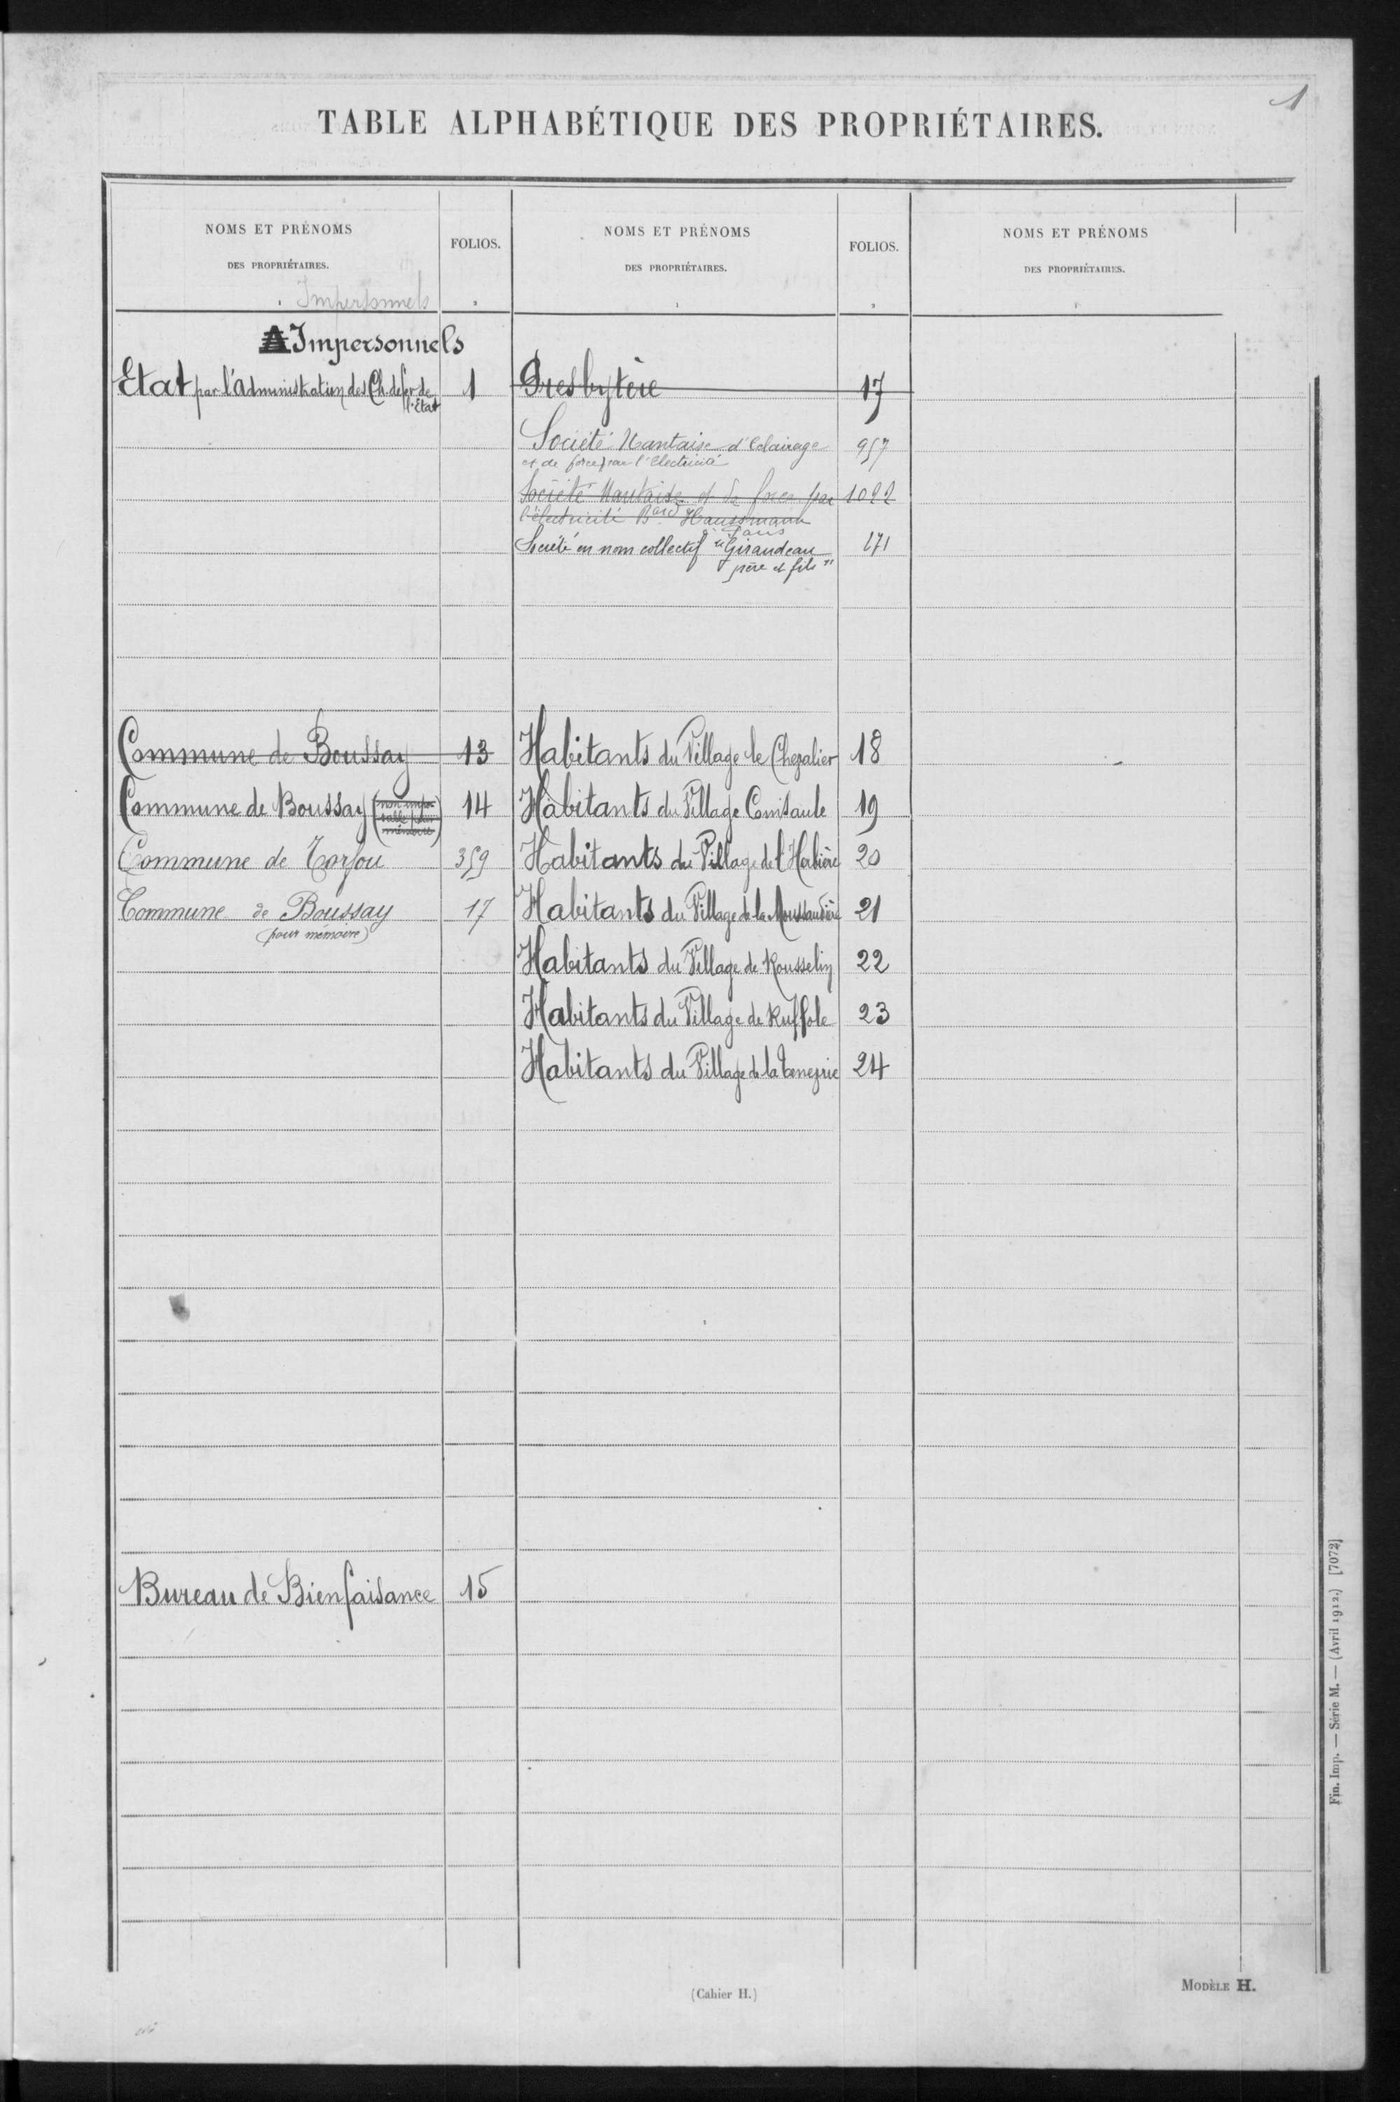 1
TABLE ALPHABÉTIQUE DES PROPRIÉTAIRES.
NOMS ET PRÉNOMS
DES PROPRIÉTAIRES.
FOLIOS.
NOMS ET PRÉNOMS
DES PROPRIÉTAIRES.
FOLIOS.
NOMS ET PRÉNOMS
DES PROPRIÉTAIRES.
Impersonnels
Impersonnels
Etat par l'Administration des Ch. de fer de l'Etat 1
Commune de Boussay 13
Commune de Boussay (non impo-
sable pour
mémoire) 14
Commune de Torfou 359
Commune de Boussay 17
(pour mémoire)
Bureau de Bienfaisance 15
Presbytère 17
Société Nantaise d'Eclairage 957
et de force par l'Electricité
Société Nantaise et de force par 1022
l'électricité Bard Haussmann
à Paris
Société en nom collectif "Giraudeau 171
père et fils"
Habitants du Village le Chevalier 18
Habitants du Village 19
Habitants du Village de l'Herbière 20
Habitants du Village de la Moussaudière 21
Habitants du Village de Rousselin 22
Habitants du Village de Ruffole 23
Habitants du Village de la 24
Fin. Imp. — Série M. — (Avril 1912.) [7072]
(Cahier H.)
MODÈLE H.